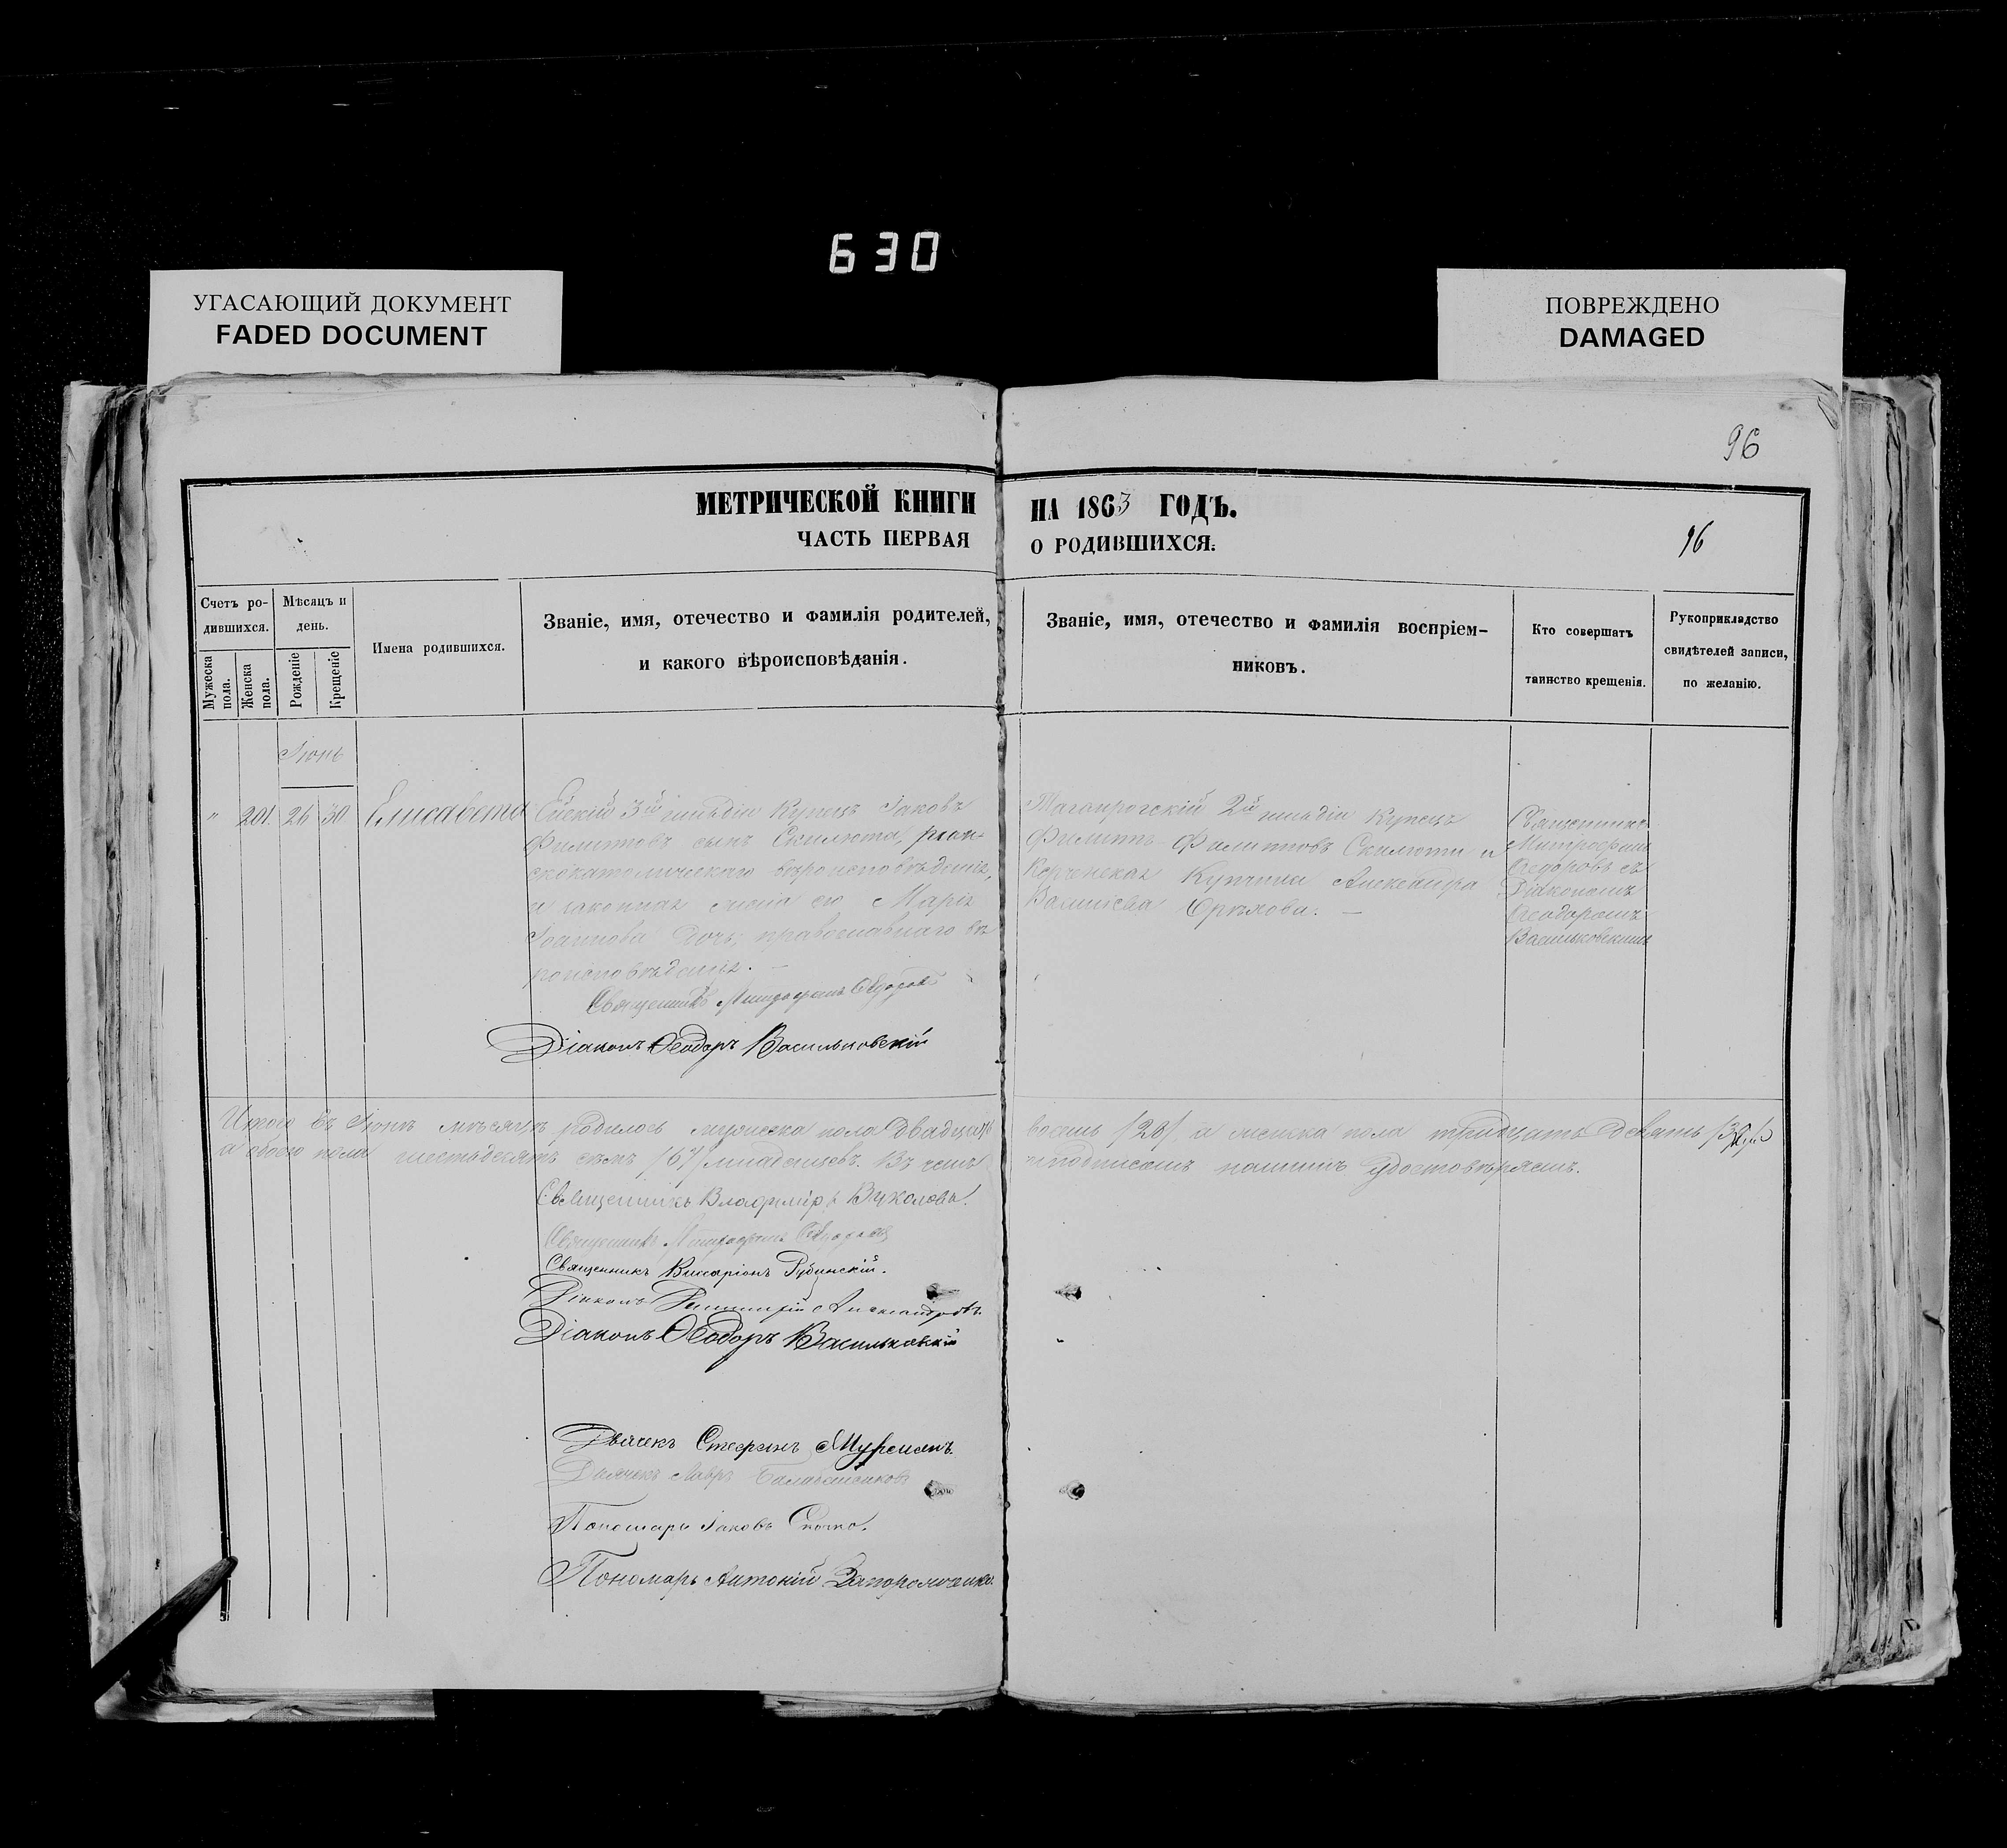 630
УГАСАЮЩИЙ ДОКУМЕНТ
FADED DOCUMENT
ПОВРЕЖДЕНО
DAMAGED
96
МЕТРИЧЕСКОЙ КНИГИ НА 1863 ГОДЪ.
ЧАСТЬ ПЕРВАЯ О РОДИВШИХСЯ.
96
Счетъ ро-
дившихся.
Мужеска пола.
Женска пола.
Мѣсяцъ и
день.
Рожденіе
Крещеніе
Имена родившихся.
Званіе, имя, отечество и фамилія родителей,
и какого вѣроисповѣданія.
Званіе, имя, отечество и фамилія воспріем-
никовъ.
Кто совершатъ
таинство крещенія.
Рукоприкладство
свидѣтелей записи,
по желанію.
Іюнь
" 201. 26 30 Елисавета
Ейскій 3й гильдіи Купецъ Іаковъ
Филиповъ сынъ Скилюта, рим-
скокатолическаго вѣроисповѣданія,
и законная жена его Марія
Іоаннова Дочь, православнаго вѣ
роисповѣданія. —
Священникъ Митрофанъ Ѳедоровъ
Діаконъ Ѳеодоръ Васильковскій
Таганрогскій 2й гильдіи Купецъ
Филипъ Филиповъ Скилюти и
Керченская Купчиха Александра
Васильева Орѣхова. —
Священникъ
Митрофанъ
Ѳедоровъ съ
Діакономъ
Ѳеодоромъ
Васильковскимъ
Итого въ Іюнѣ мѣсяцѣ родилось мужеска пола двадцать восемь /28/ а женска пола тридцать девять /39/
а обоего пола шестьдесятъ семь /67/ младенцевъ. Въ чемъ подписомъ нашимъ удостовѣряемъ.
Священникъ Владиміръ Вуколовъ.
Священникъ Митрофанъ Ѳедоровъ
Священникъ Виссаріонъ Рубинскій.
Діаконъ Димитрій Александровъ.
Діаконъ Ѳеодоръ Васильковскій
Дьячекъ Стефанъ
Дьячекъ Лавръ
Пономарь Іаковъ Скочко.
Пономарь Антоній Запорожченко.